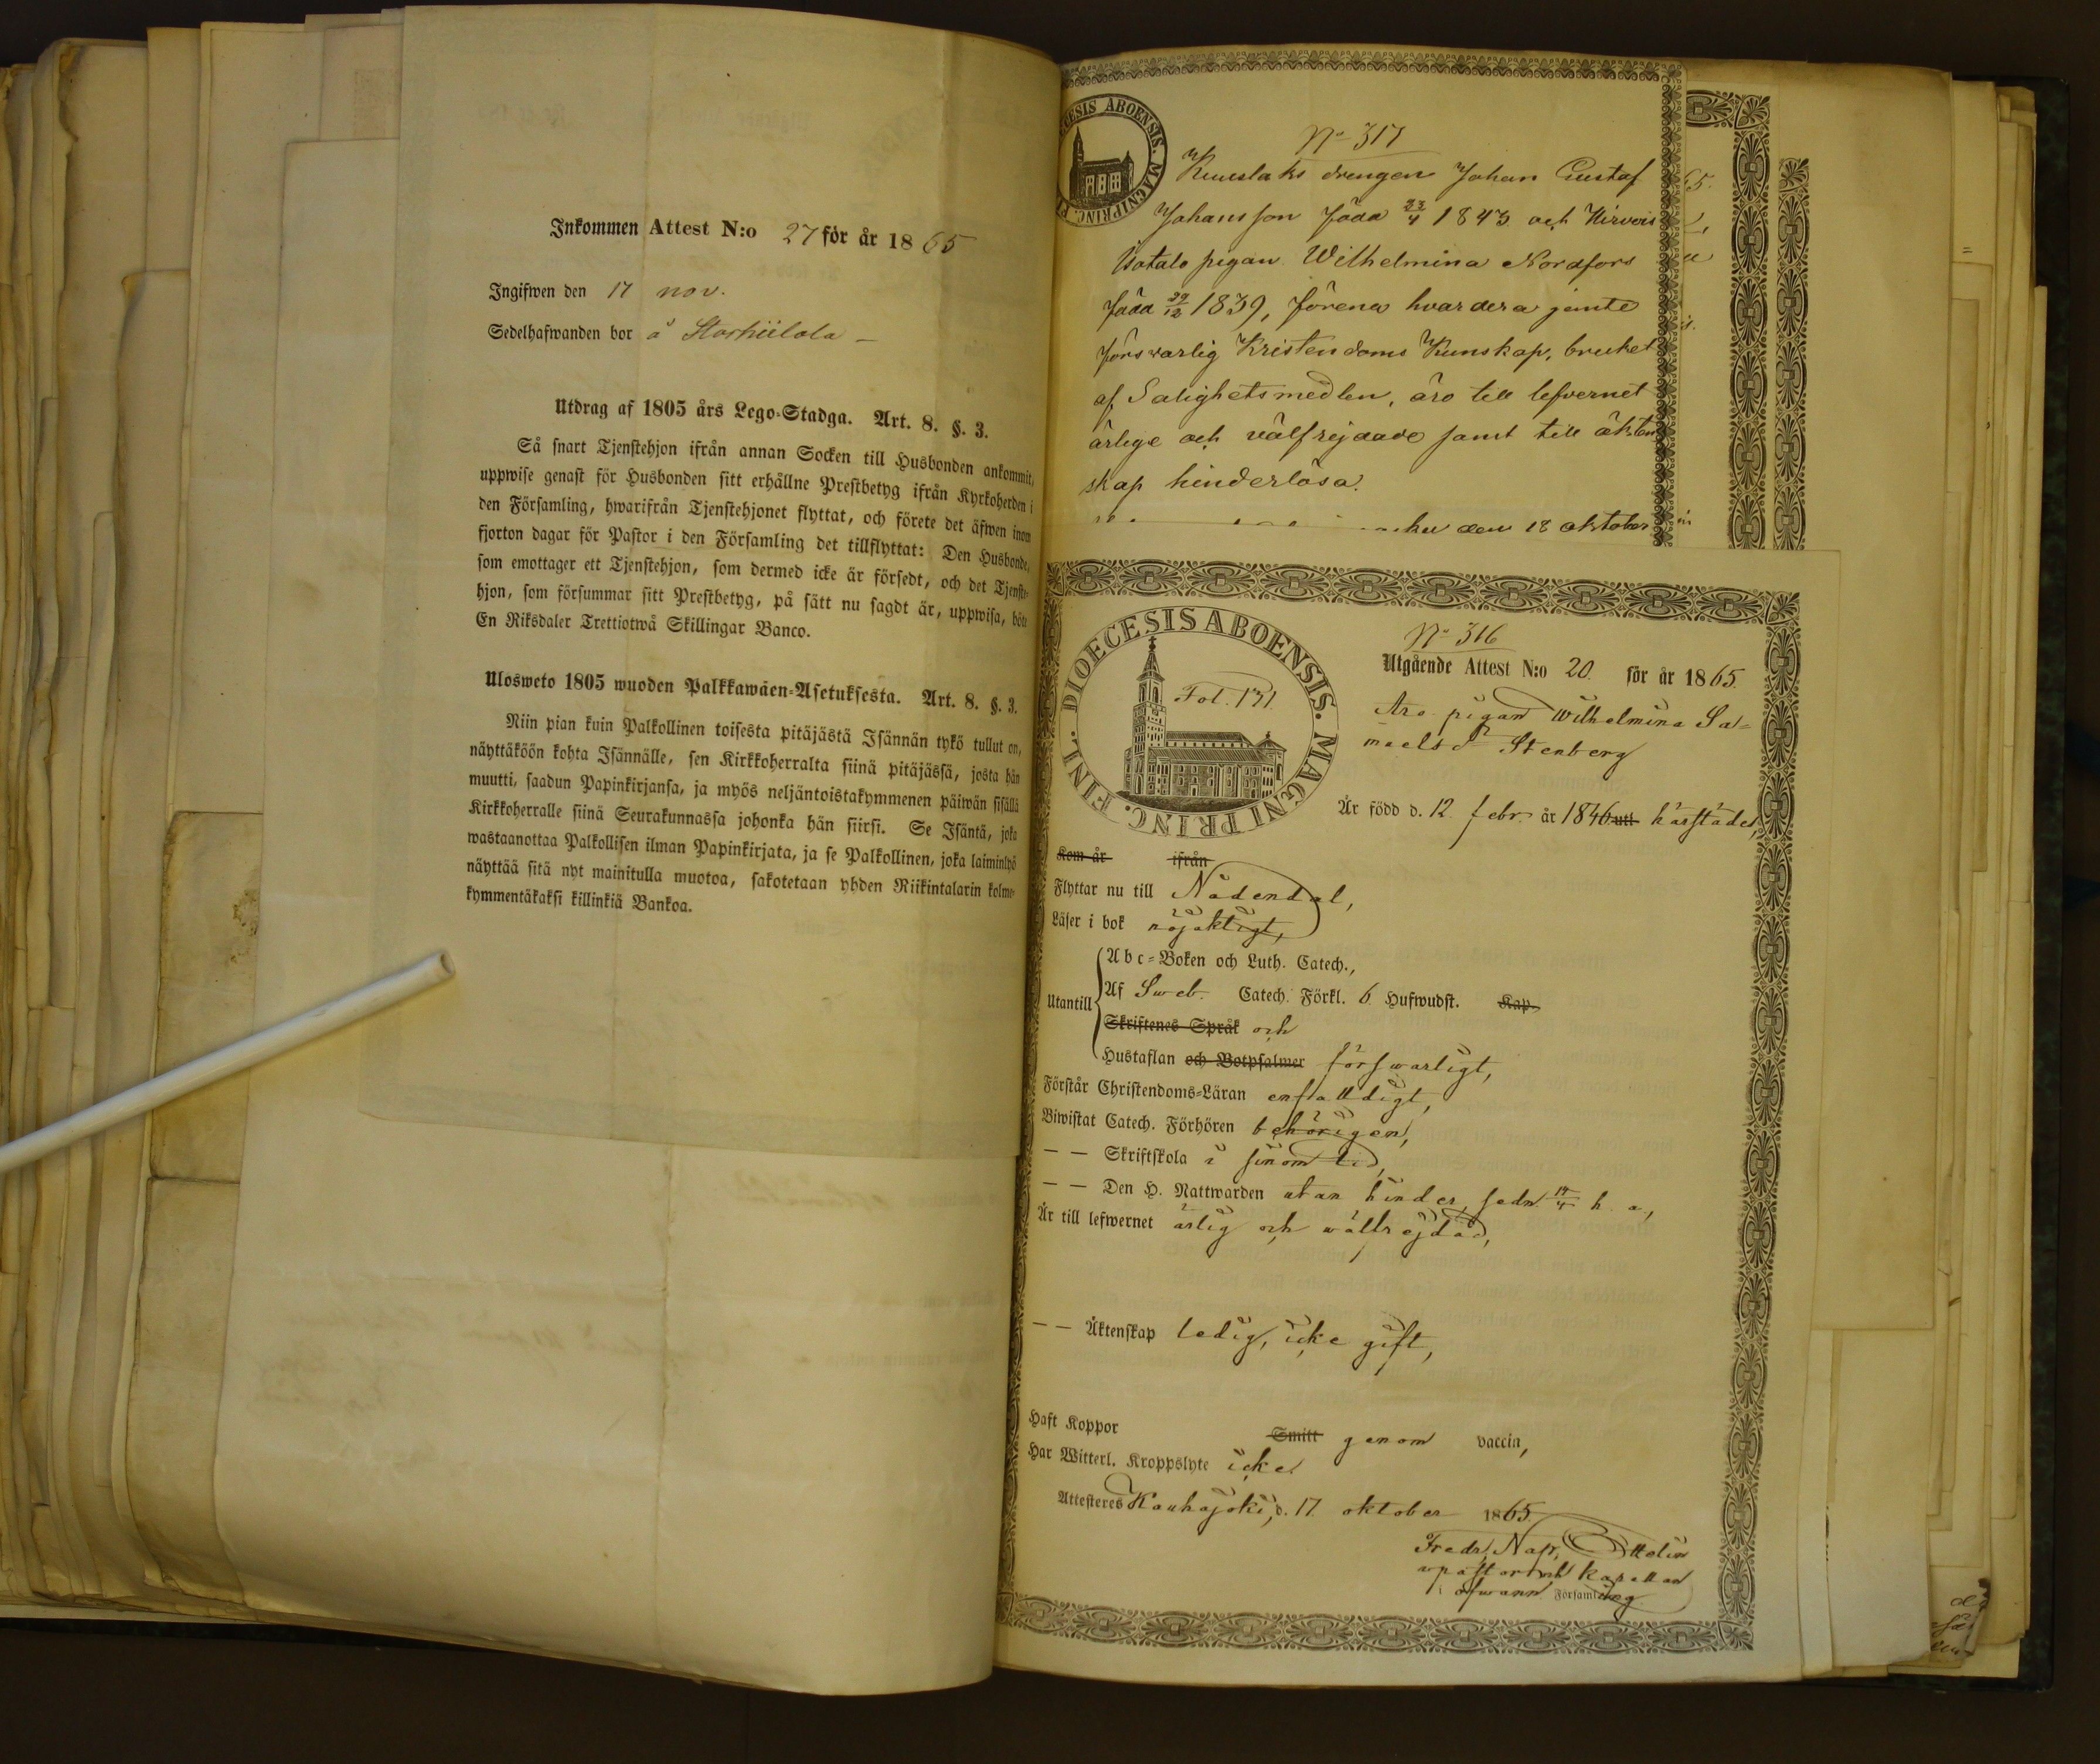 Inkommen Attest N:o 27 för år 1865
Ingifwen den 17 nov.
Sedelhafwanden bor å Storhiilola –
Utdrag af 1805 års Lego-Stadga. Art. 8. §. 3.
Så snart Tjenstehjon ifrån annan Socken till Husbonden ankommit,
uppwise genast för Husbonden sitt erhållne Prestbetyg ifrån Kyrkoherden i
den Församling, hwarifrån Tjenstehjonet flyttat, och förete det äfwen inom
fjorton dagar för Pastor i den Församling det tillflyttat: Den Husbonde,
som emottager ett Tjenstehjon, som dermed icke är försedt, och det Tjenste-
hjon, som försummar sitt Prestbetyg, på sätt nu sagdt är, uppwisa, böte
En Riksdaler Trettiotwå Skillingar Banco.
Ulosweto 1805 wuoden Palkkawäen-Asetuksesta. Art. 8. §. 3.
Niin pian kuin Palkollinen toisesta pitäjästä Isännän tykö tullut on,
näyttäköön kohta Isännälle, sen Kirkkoherralta siinä pitäjässä, josta hän
muutti, saadun Papinkirjansa, ja myös neljäntoistakymmenen päiwän sisällä
Kirkkoherralle siinä Seurakunnassa johonka hän siirsi. Se Isäntä, joka
wastaanottaa Palkollisen ilman Papinkirjata, ja se Palkollinen, joka laiminlyö
näyttää sitä nyt mainitulla muotoa, sakotetaan yhden Riikintalarin kolme-
kymmentäkaksi killinkiä Bankoa.
No 317
drengen Johan Gustaf
Johansson föda 23/4 1843 och Hirvois
Isotalo pigan Wilhelmina Nordfors
föda 29/12 1839, förena hvardera jemte
försvarlig Kristendoms Kunskap, bruket
af Salighetsmedlen, äro till lefvernet
ärlige och välfrejdade samt till äkten
skap hinderlösa.
den 18 oktober
DIOECESIS ABOENSIS. MAGNI PRINC. FINL.
Fol. 131
No 316
Utgående Attest N:o 20. för år 1865.
Aro pigan Wilhelmina Sa-
maelsdr Stenberg
Är född d. 12. febr. år 1846 uti härstädes
Kom år ifrån
Flyttar nu till Nådendal,
Läser i bok nöjaktigt,
Utantill
Abc-Boken och Luth. Catech.,
Af Sweb. Catech. Förkl. 6 Hufwudst. Kap.
Skriftenes Språk och
Hustaflan och Botpsalmer förswarligt,
Förstår Christendoms-Läran enfalldigt,
Biwistat Catech. Förhören behörigen,
– – Skriftskola i sinom tid,
– – Den H. Nattwarden utan hinder, sedn. 17/4 h. a,
Är till lefwernet ärlig och wälfrejdad,
– – Äktenskap ledig, icke gift,
Haft Koppor Smitt genom vaccin,
Har Witterl. Kroppslyte icke.
Attesteres Kauhajoki, d. 17. oktober 1865.
Fredr. Nap.
och kapellan
i ofwann. Församling